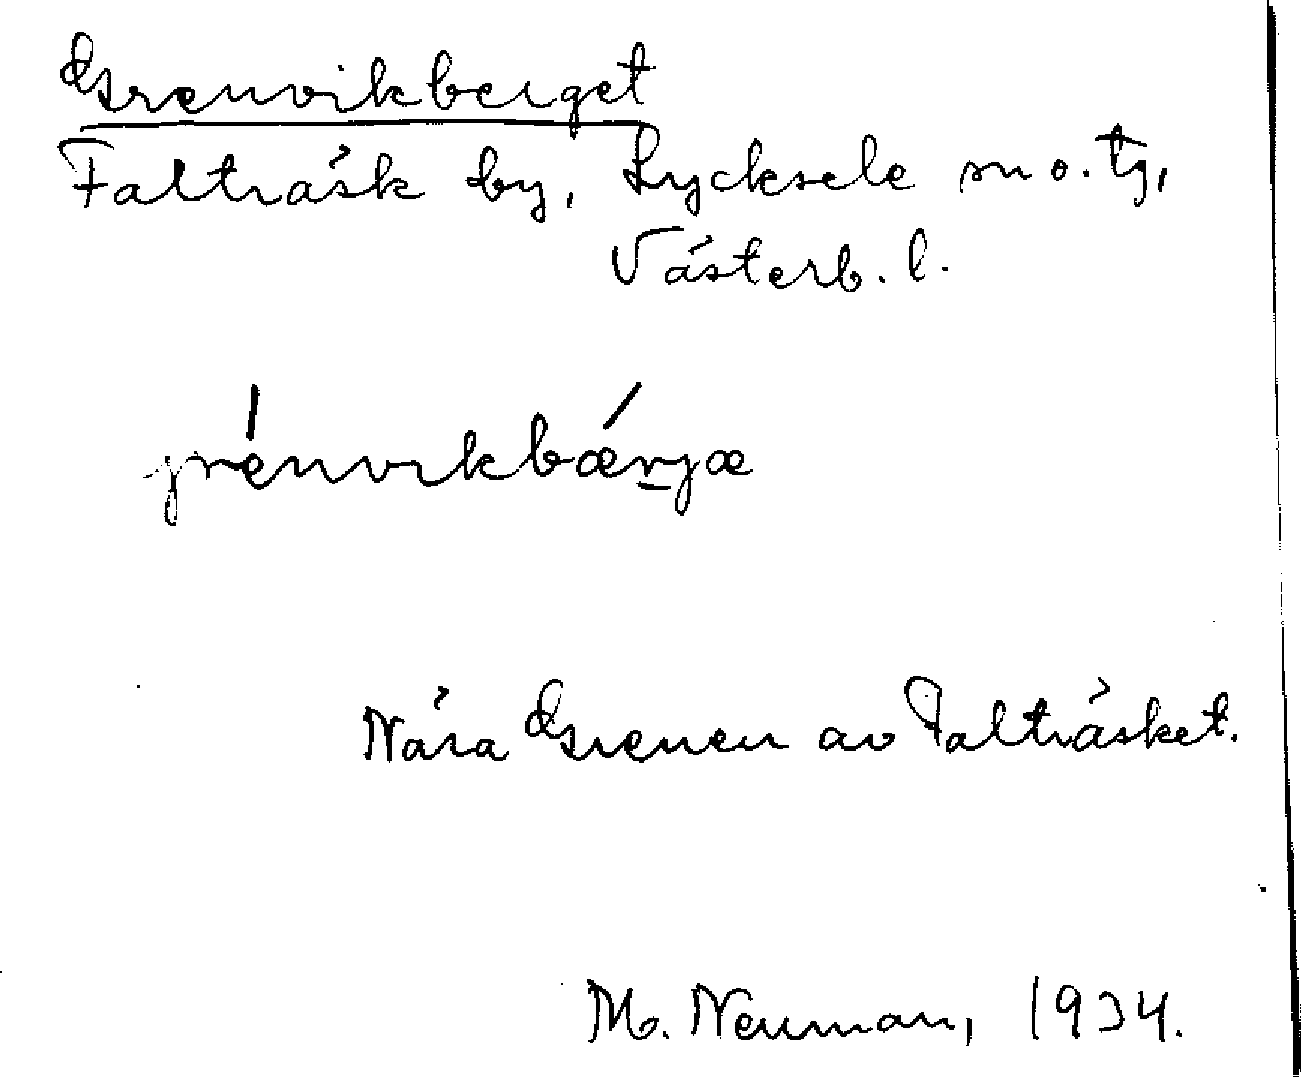 Grenvikberget
Falträsk by, Lycksele sn o. tg,
Västerb. l.
grénvikbǽrjæ
Nära Grenen av Falträsket.
M. Neuman, 1934.